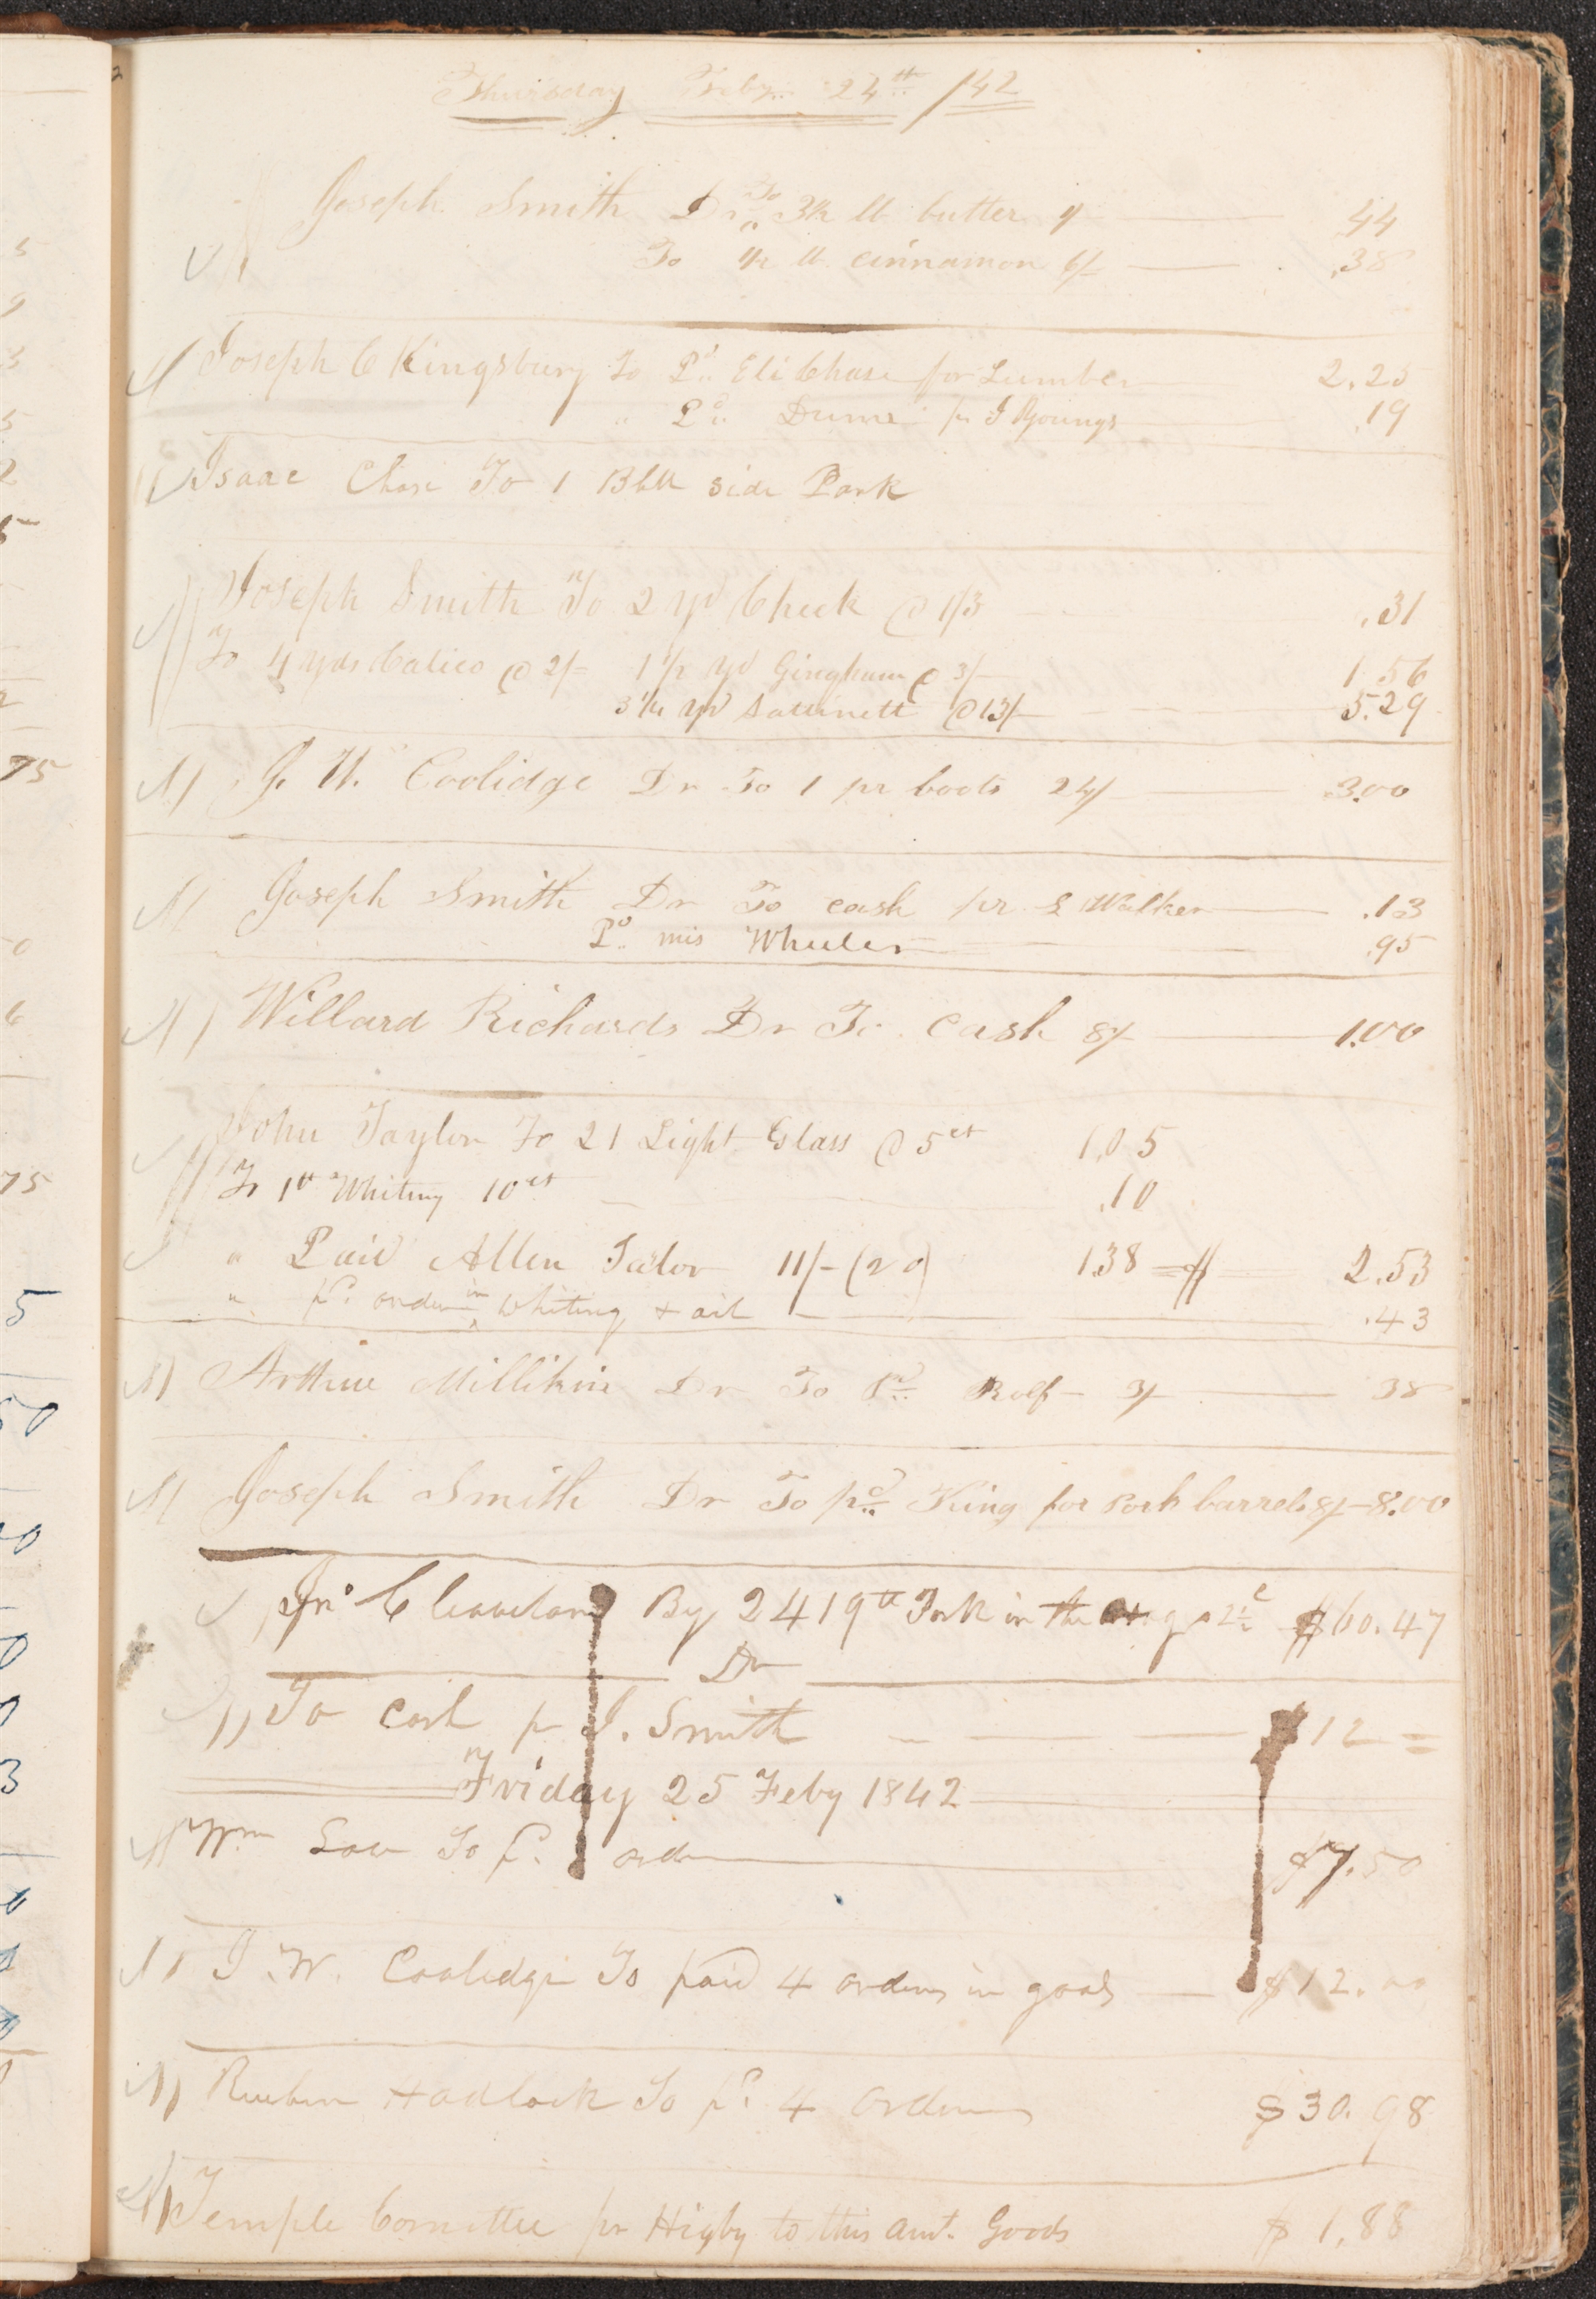 Thursday Feby. 24th /42
Joseph Smith Dr To 3½ lb butter 1/ 44
To ½ lb cinnamon 6/ .38
Joseph C Kingsbury To Pd. Eli Chase for Lumber 2.25
" Pd. Dume pr J Youngs .19
Isaac Chase To 1 Bbll side Pork
Joseph Smith To 2 yd Check @ 1/3 .31
To 4 yds Calico @ 2/- 1½ yd Gingham @ 3/- 1.56
3¼ yd Sattinett @ 13/- 5.29
J. W. Coolidge Dr To 1 pr boots 24/ 3.00
Joseph Smith Dr To cash pr L Walker .13
Pd. mis Wheeler .95
Willard Richards Dr To cash 8/- 1.00
John Taylor To 21 Light Glass @ 5ct 1.05
To 1lb Whiting 10ct .10
" Paid Allen Tailor 11/- (20) 1.38 = $ 2.53
" pd. order in Whiting + oil .43
Arthur Millikin Dr To Pd. Rolf 3/- 38
Joseph Smith Dr To pd. King for Pork barrels 8/- 8.00
Jno Cleaveland By 2419lb Pork in the Hog @ 2½c $60.47
Dr
To Cash pr J. Smith $12 =
Friday 25 Feby 1842
Wm Law To pd. order $7.50
J. W. Coolidge To paid 4 orders in goods $12.00
Reuben Hadlock To pd. 4 orders $30.98
Temple Comittee pr Higby to this amt. Goods $1.88